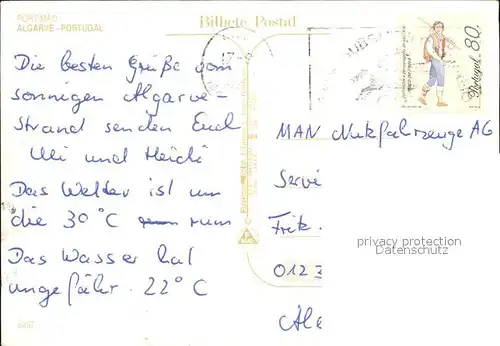 PORTIMÃO
ALGARVE - PORTUGAL
Bilhete Postal
Portugal 80.
Die besten Grüße vom
sonnigen Algarve-
Strand senden Euch
Uli und Heidi
Das Wetter ist um
die 30°C rum
Das Wasser hat
ungefähr 22°C
MAN Nutzfahrzeuge AG
Servi
Fritz
012
privacy protection
Datenschutz